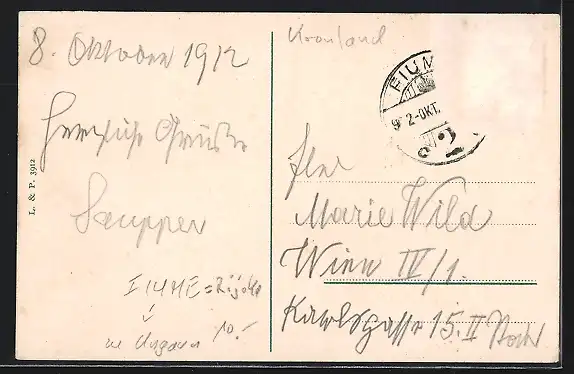 8. Oktober 1912
Herzliche Grüsse
L. & P. 3912
FIUME = Rijeka
10.-
Kroatand
FIUM
912-OKT.
2
Marie Wild
Wien IV/1.
Karlsgasse 15. II Stock